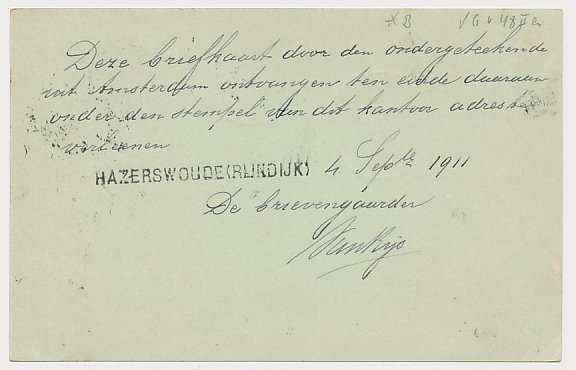 Deze briefkaart door den ondergeteekende
uit Amsterdam ontvangen ten einde daaraan
onder den stempel van dit kantoor adres te
verleenen
HAZERSWOUDE (RIJNDIJK) 4 Septe 1911
De brievengaarder